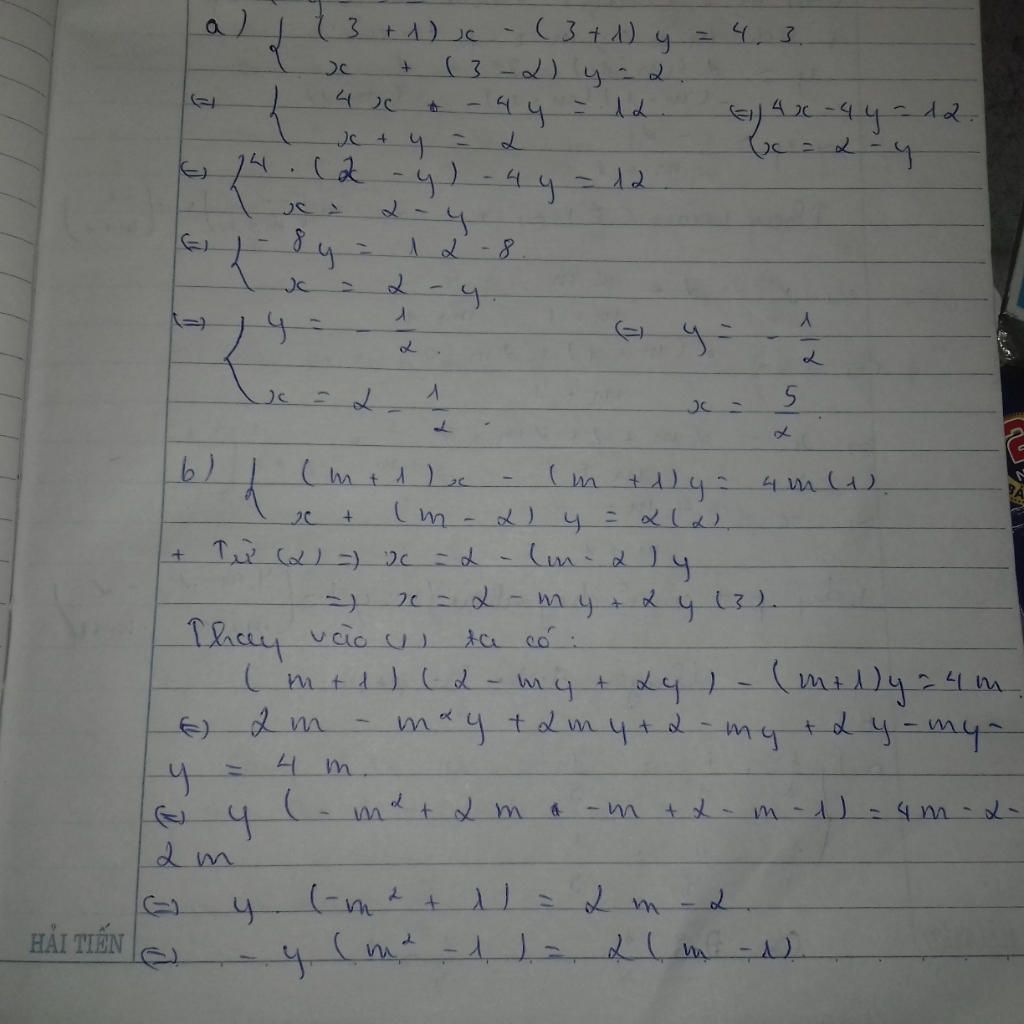 a) { (3 + 1) x - (3+1) y = 4. 3
x + (3 - 2) y = 2.
⇔ { 4x - 4y = 12. ⇔ { 4x - 4y = 12.
x + y = 2 x = 2 - y
⇔ { 4 . (2 - y) - 4y = 12
x = 2 - y
⇔ { - 8y = 12 - 8.
x = 2 - y.
⇔ { y = - 1/2. ⇔ y = - 1/2
x = 2 - 1/2. x = 5/2.
b) { (m + 1) x - (m + 1) y = 4m (1).
x + (m - 2) y = 2 (2).
+ Từ (2) ⇒ x = 2 - (m - 2) y
⇒ x = 2 - my + 2y (3).
Thay vào (1) ta có:
(m + 1) (2 - my + 2y) - (m+1) y = 4m
⇔ 2m - m²y + 2my + 2 - my + 2y - my -
y = 4m.
⇔ y (- m² + 2m - m + 2 - m - 1) = 4m - 2 -
2m
⇔ y. (-m² + 1) = 2m - 2.
⇔ - y (m² - 1) = 2 (m - 1)
HẢI TIẾN